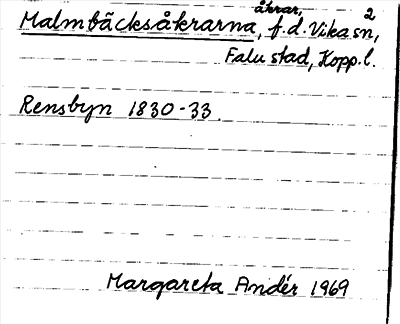 Malmbäcksåkrarna, åkrar, f.d. Vika sn, 2
Falu stad, Kopp. l.
Rensbyn 1830-33.
Margareta Andér 1969